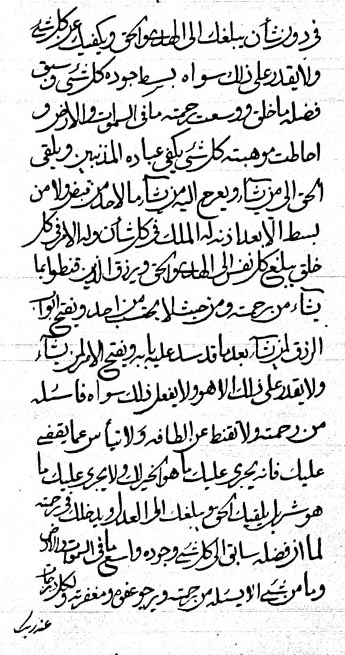 في دور شأن يبلغك الى الهاء هو الحق ويكفيك عن كل شئ
ولا يقدر على ذلك سواه بسط جوده كل شئ وسبق
فضله ما خلق ووسعت رحمته ما في السموات والارض و
احاطت موهبته كل شئ يكفي عباده المذنبين ويلقى
الحق الى من يشاء ويعرج اليه من يشاء ما لاحد من قبض ولا من
بسط الا بعد اذنه له الملك في كل شأن وله الامر في كل
خلق يبلغ كل نفس الى الهاء هو الحق ويرزق الذين قنطوا بما
يشاء من رحمته ومن حيث لا يحتسب من احد ويفتح ابواب
الرزق لمن يشاء بعد ما قد سد عليه بابه ويفتح الامر لمن يشاء
ولا يقدر على ذلك الا هو ولا يفعل ذلك سواه فاسئله
من رحمته ولا تقنط عن الطافه ولا تيأس عما يقضى
عليك فانه يجرى عليك ما هو الخير لك ولا يجرى عليك ما
هو شر بل يلقيك الحق ويبلغك الى العدل ويدخلك في رحمته
لما ان فضله سابق الى كل شئ وجوده واسع ما في السموات والارض
وما من شئ الا يسئله من رحمته ويرجو عفوه ومغفرته ولكل
عند ربك